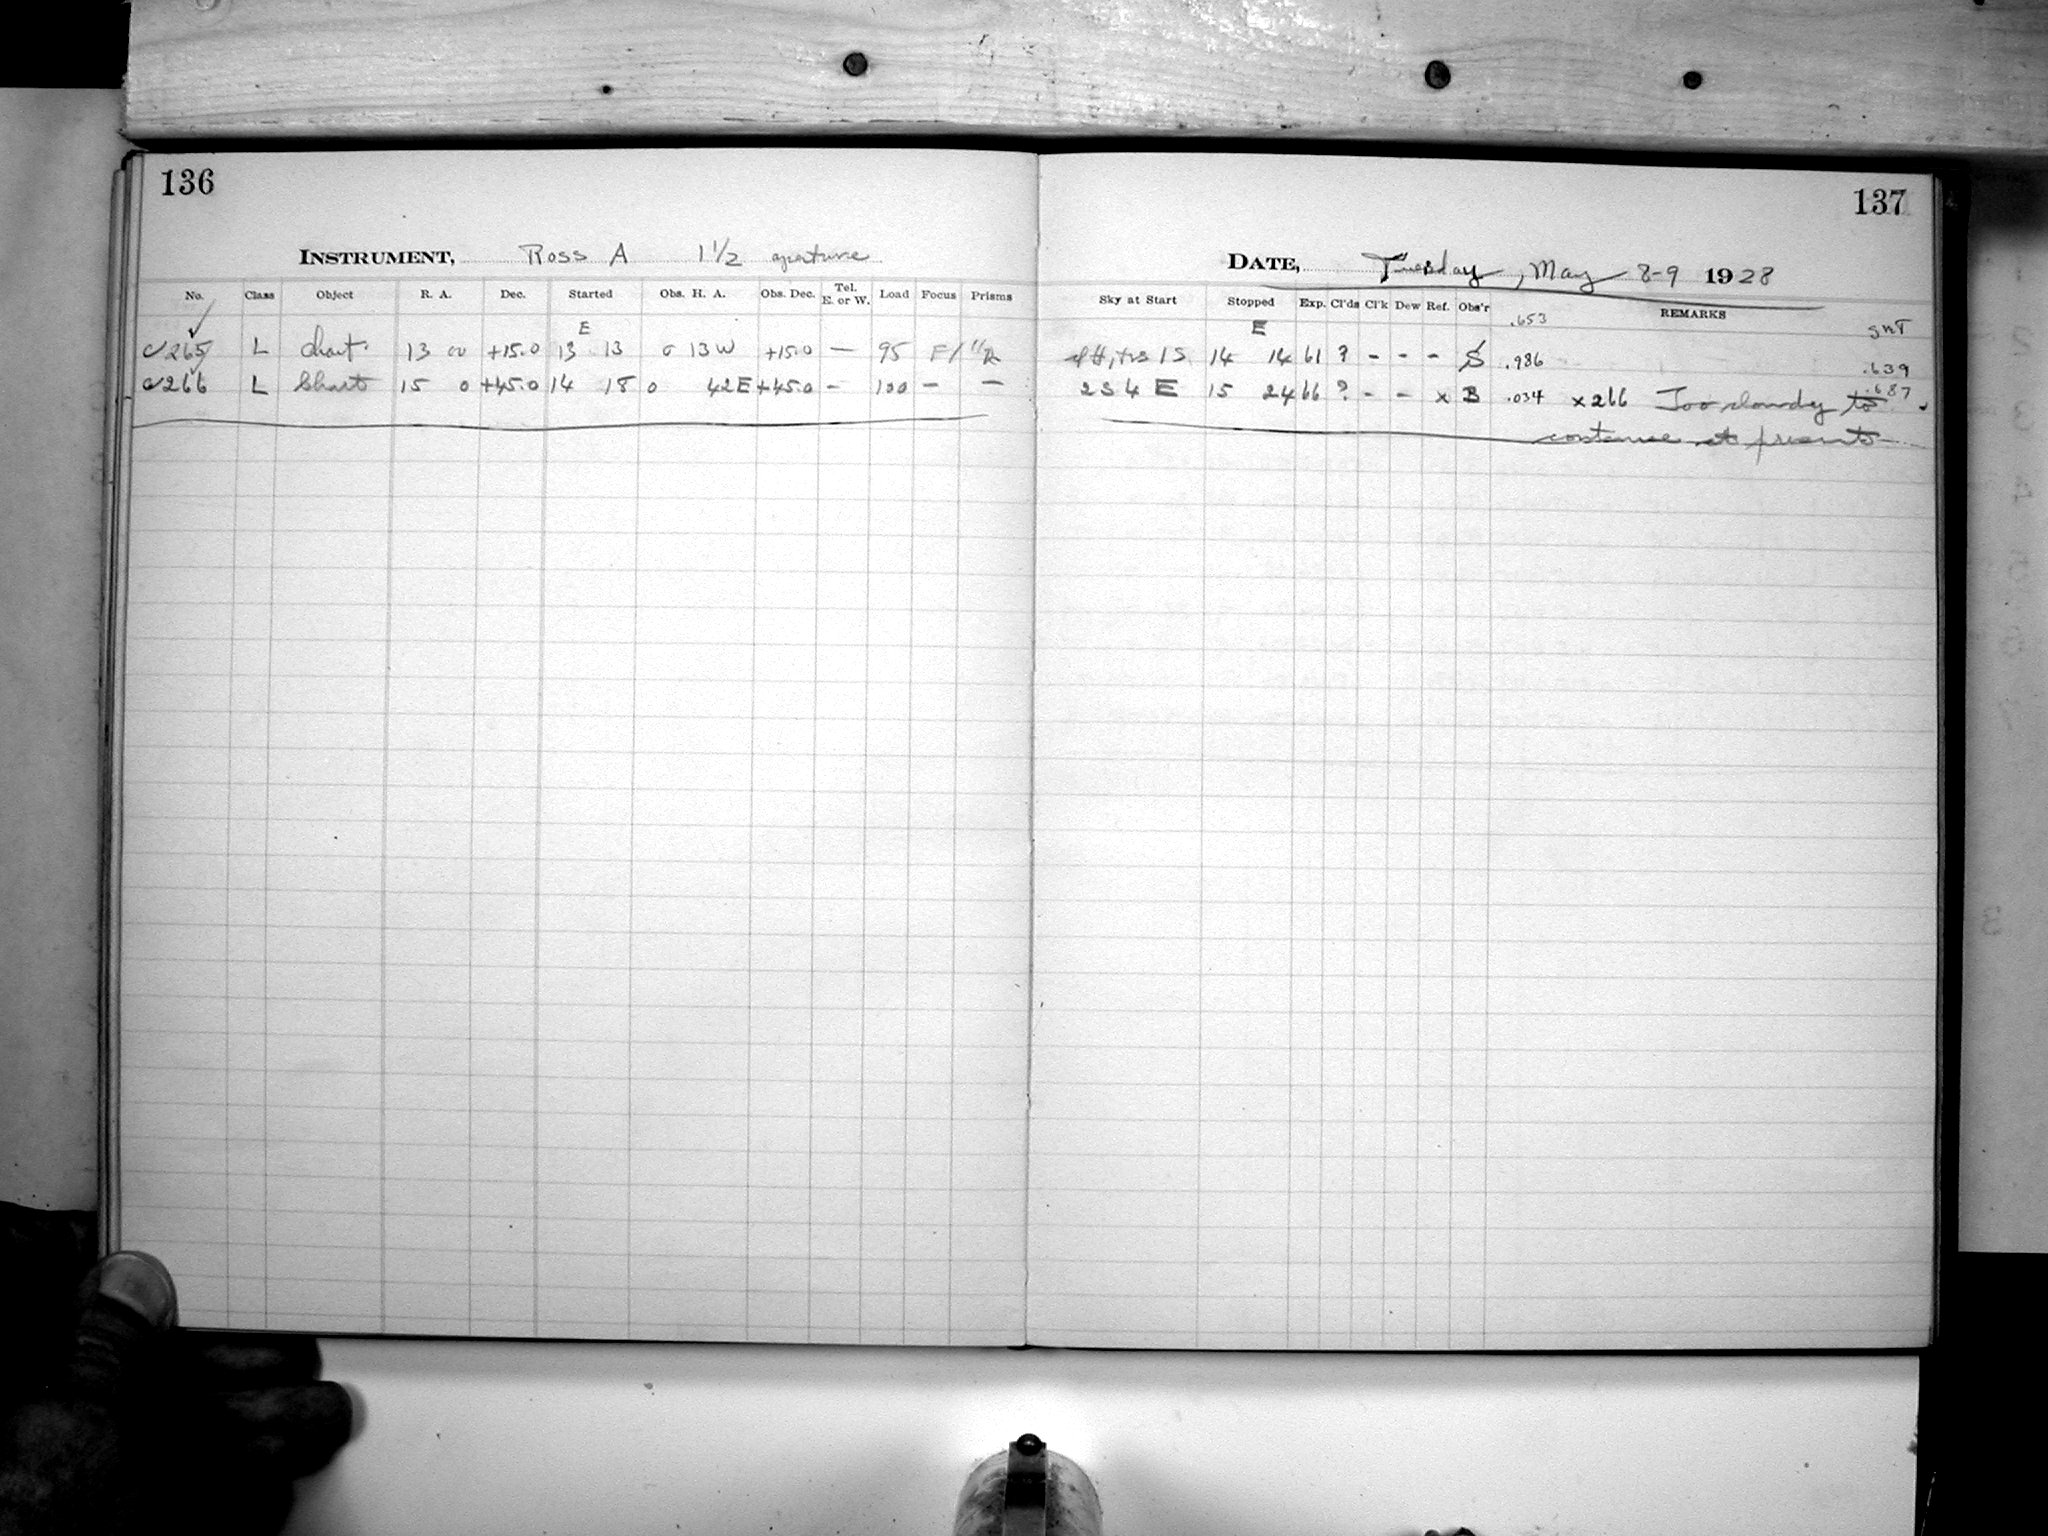 136
INSTRUMENT, Ross A 1 1/2 aperture
No. Class Object R. A. Dec. Started Obs. H. A. Obs. Dec. Tel. E. or W. Load Focus Prisms
E
265 L Chart 13 00 +15.0 13 13 0 13 W +15.0 — 95
266 L Chart 15 0 +45.0 14 18 0 42 E +45.0 - 100 - —
137
DATE, Tuesday, May 8-9 1928
Sky at Start Stopped Exp. Cl'ds Cl'k Dew Ref. Obs'r REMARKS
E .653 GMT
1 S 14 14 61 ? - - - S .986 .639
2 S 4 E 15 24 66 ? - - x B .034 x266 Too cloudy to .687
continue at present